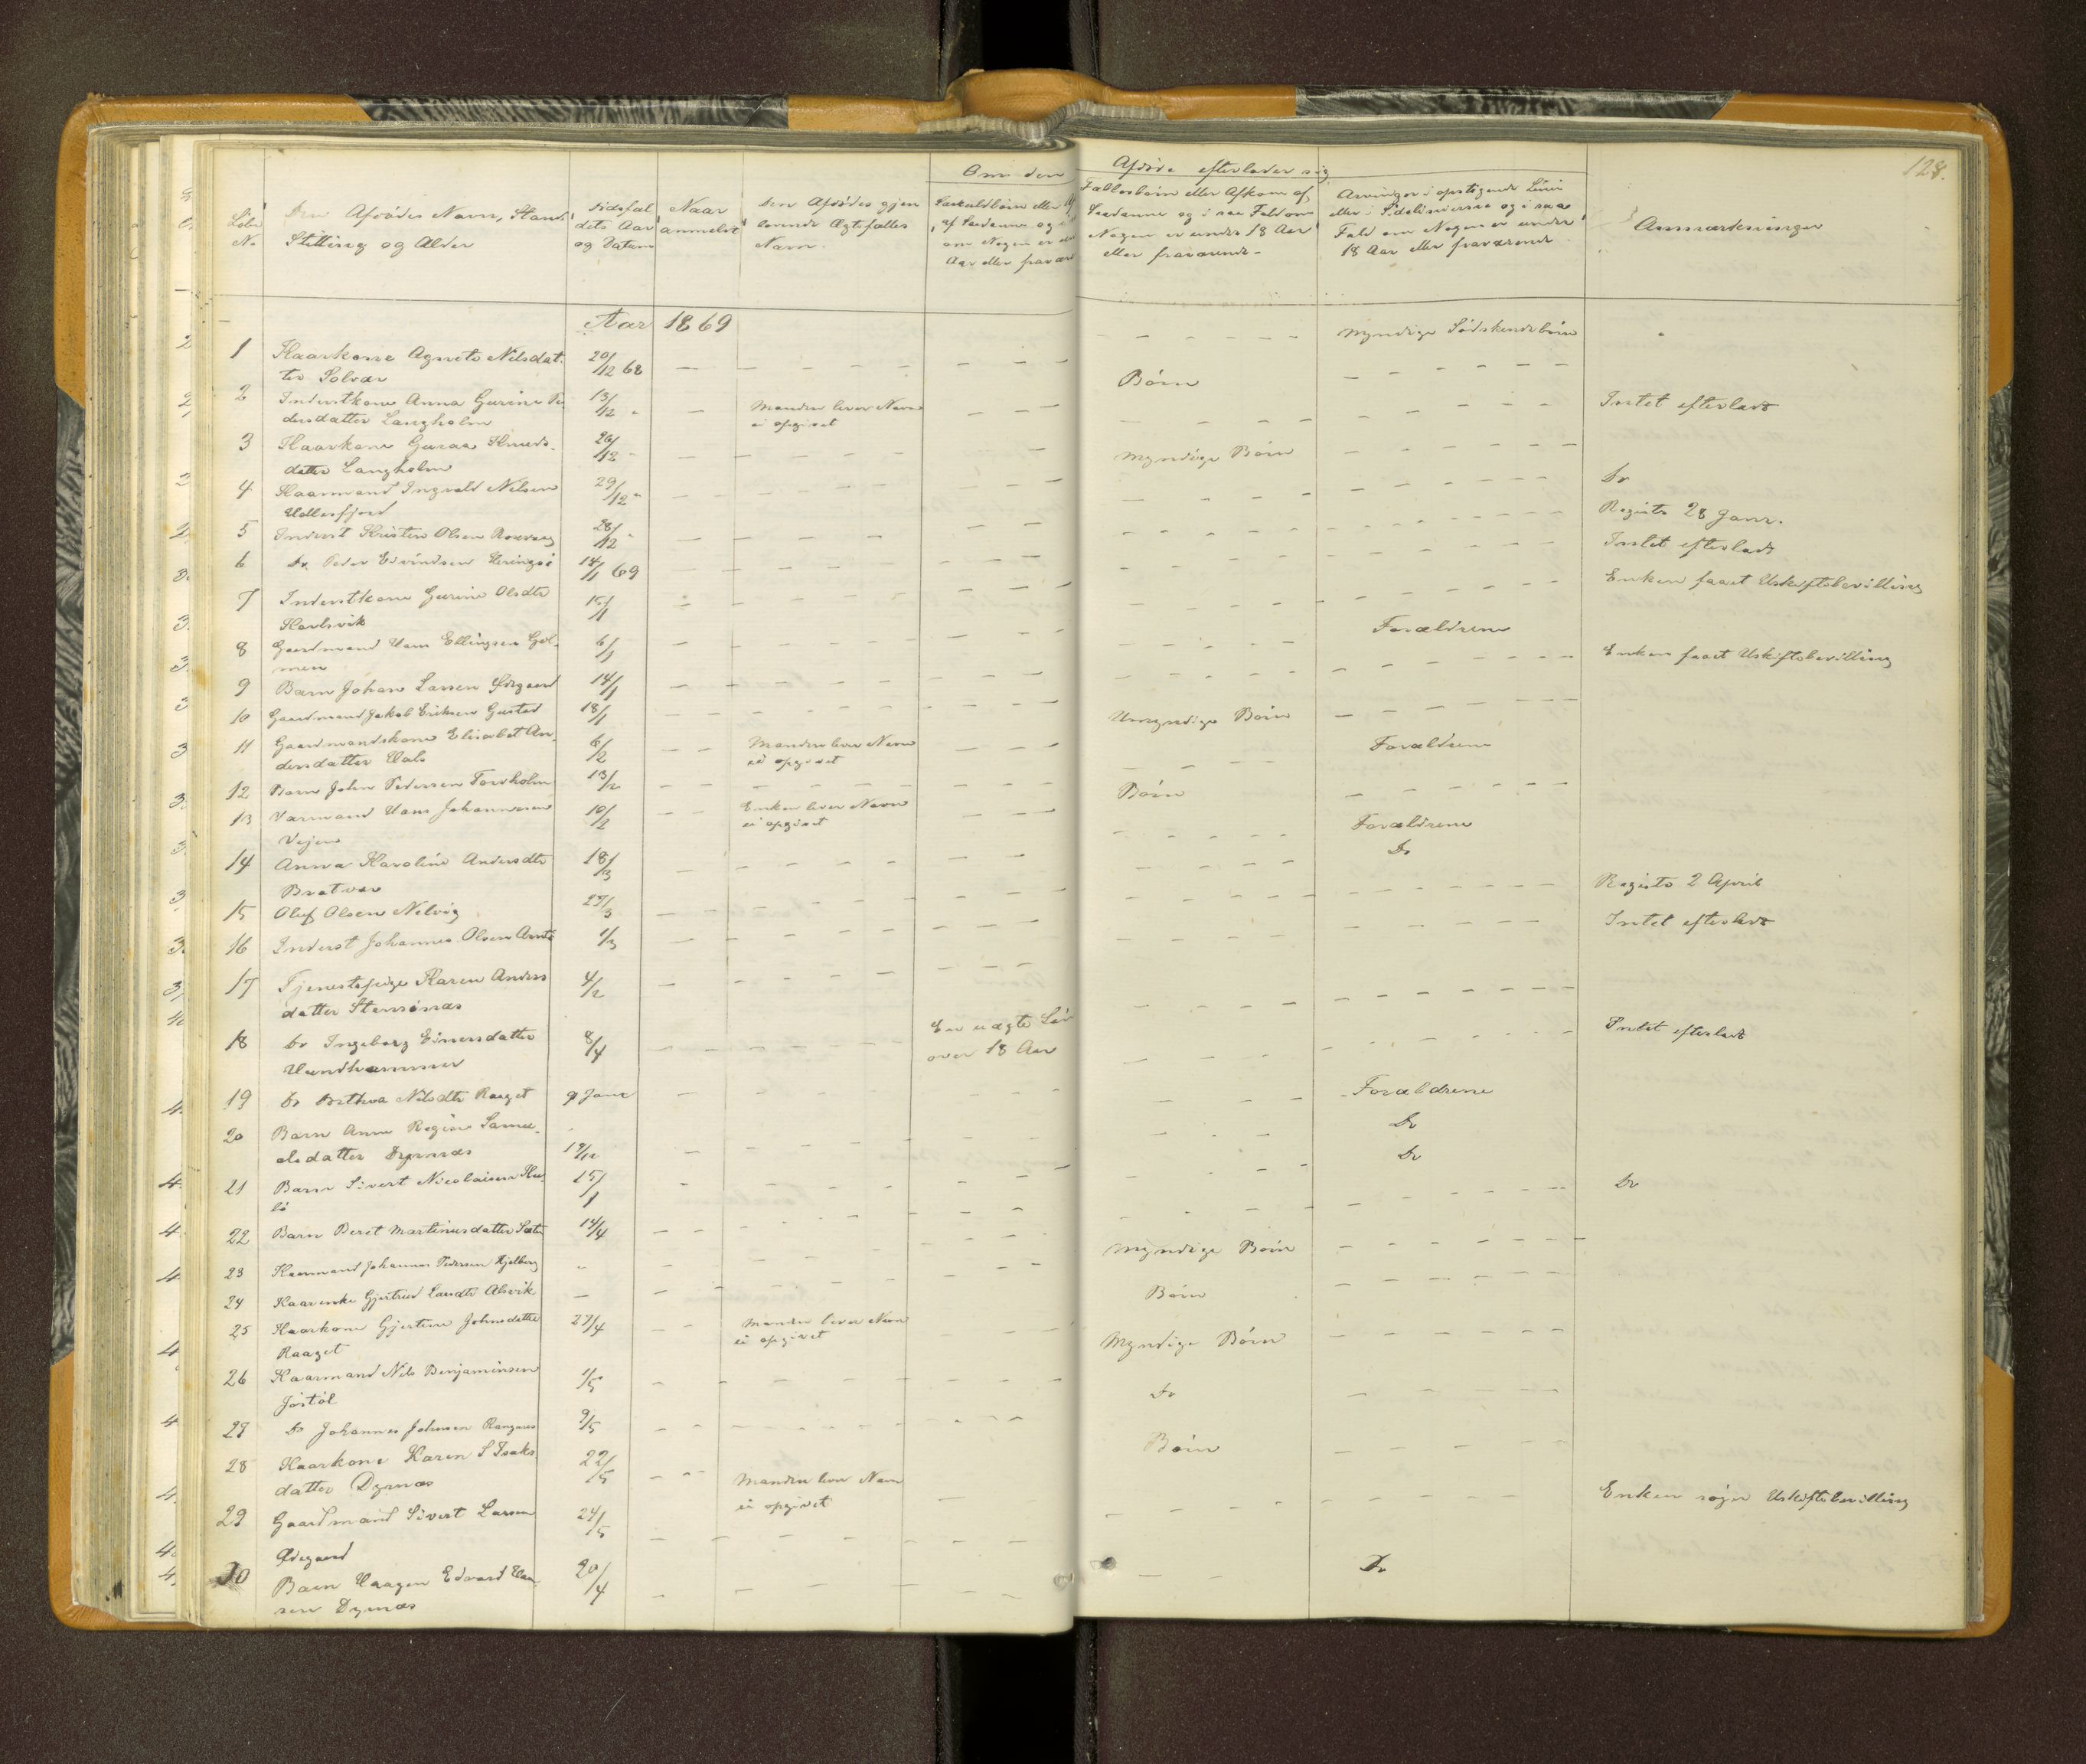 128.
Om den Afdøde efterlader sig
Løbe No
Den Afdødes Navn, Stand,
Stilling og Alder
Dødsfal
dets Aar
og Datum
Naar
anmeldt
Den Afdødes gjen
levende Ægtefælles
Navn.
Særkuldbørn eller Af
af Saadanne og i
om Nogen er
Aar eller fravær
Fællesbørn eller Afkom af
Saadanne og i saa Fald om
Nogen er under 18 Aar
eller fraværende
Arvinger i opstigende Linie
eller i Sidelinierne og i saa
Fald om Nogen er under
18 Aar eller fraværende
Anmærkninger
Aar 1869
1 Kaarkone Agnete Nilsdat- 20/12 68 — Myndige Sødskendebørn
ter Solvær
2 Inderstkone Anna Gurine Pe 13/12 " — Manden lever Navn — Børn
dersdatter Langholm ei opgivet
Intet efterladt
3 Kaarkone Guraa Knuds- 26/12 "
datter Langholm
4 Kaarmand Ingvald Nilsen 29/12 " — Myndige Børn
Uttersfjord
Do
5 Inderst Kristen Olsen Rosvaag 28/12 " — Registr 28 Janr.
6 Do Peder Eivindsen 14/1 69 — Intet efterladt
7 Inderstkone Gurine Olsdtr 15/1 — Enken faaet Uskiftebevilling
Karlsvik
8 Gaardmand Hans Ellingsen Gul- 6/1 — Enken faaet Uskiftebevilling
men
9 Barn Johan Larsen Ødegaard 14/1 — Forældrene
10 Gaardmand Jakob Eriksen Gusted 18/1
11 Gaardmandskone Elisabet An- 6/2 — Manden lever Navn — Umyndige Børn
dersdatter Hals ei opgivet
12 Barn John Pedersen Forsholm 13/2 — Forældrene
13 Varmand Hans Johannesen 10/2 — Enken lever Navn — Børn
Vejen ei opgivet
14 Anna Karoline Andersdtr 18/3 — Forældrene
Bratvær
15 Oluf Olsen Nelvig 27/3 — Do
16 Inderst Johannes Olsen 1/3 — Registr 2 April
17 Tjenestepige Karen Anders 4/2 — Intet efterladt
datter Stensønæs
18 Do Ingeborg Einersdatter 8/4 — En uægte Søn
Hundhammer over 18 Aar
Intet efterladt
19 Do Brthva Nilsdtr Raaget 9 Janr — Forældrene
20 Barn Anne Regine Samu- 19/12 — Do
elsdatter Dyrnæs
21 Barn Sivert Nicolaisen 15/1 — Do
22 Barn Beret Martinusdatter Sæter 14/4 — Do
23 Kaarmand Johannes Pedersen Hjelberg " — Myndige Børn
24 Kaarenke Gjertrud Larsdtr Alsvik — Børn
25 Kaarkone Gjertine Johnsdatter 27/4 — Manden lever Navn — Myndige Børn
Raaget ei opgivet
26 Kaarmand Nils Benjaminsen 1/5 — Do
Jøstøl
27 Do Johannes Johnsen 9/5
28 Kaarkone Karen S Isaks- 22/5 — Manden lever Navn — Børn
datter Dyrnæs ei opgivet
29 Gaardmand Sivert Larsen 24/5 — Enken søger Uskiftebevilling
Ødegaard
30 Barn Haagen Edvard Han- 20/4 — Do
sen Dyrnæs